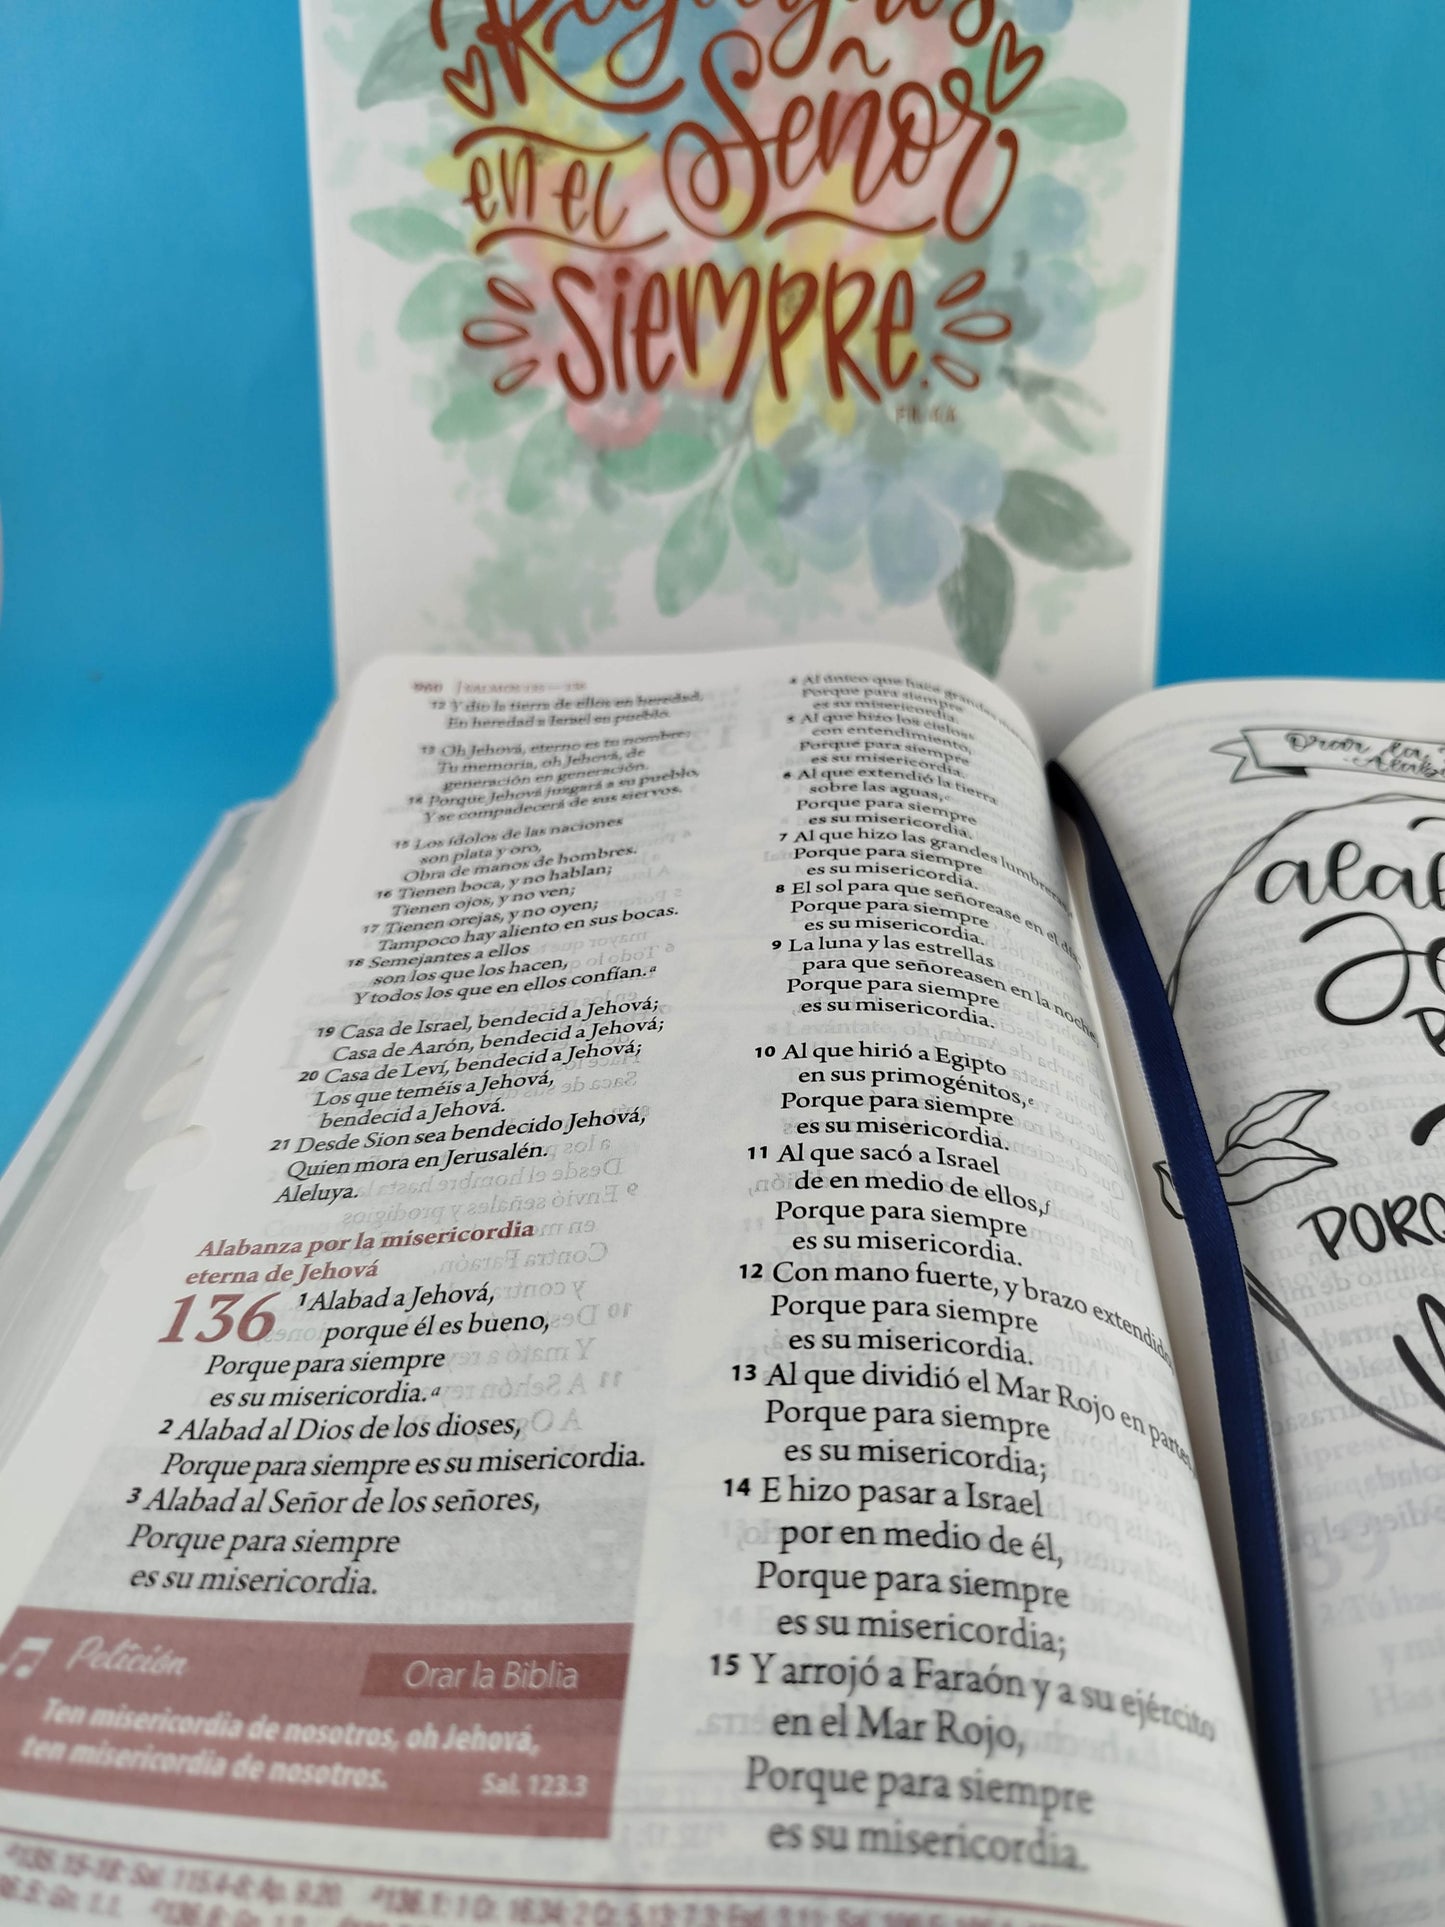 Regocijaos
en el Señor
siempre.
FIL 4:4
960 | SALMOS 135—136
12 Y dio la tierra de ellos en heredad,
En heredad a Israel su pueblo.
13 Oh Jehová, eterno es tu nombre;
Tu memoria, oh Jehová, de
generación en generación.
14 Porque Jehová juzgará a su pueblo,
Y se compadecerá de sus siervos.
15 Los ídolos de las naciones
son plata y oro,
Obra de manos de hombres.
16 Tienen boca, y no hablan;
Tienen ojos, y no ven;
17 Tienen orejas, y no oyen;
Tampoco hay aliento en sus bocas.
18 Semejantes a ellos
son los que los hacen,
Y todos los que en ellos confían.a
19 Casa de Israel, bendecid a Jehová;
Casa de Aarón, bendecid a Jehová;
20 Casa de Leví, bendecid a Jehová;
Los que teméis a Jehová,
bendecid a Jehová.
21 Desde Sion sea bendecido Jehová,
Quien mora en Jerusalén.
Aleluya.
Alabanza por la misericordia
eterna de Jehová
136 1 Alabad a Jehová,
porque él es bueno,
Porque para siempre
es su misericordia.a
2 Alabad al Dios de los dioses,
Porque para siempre es su misericordia.
3 Alabad al Señor de los señores,
Porque para siempre
es su misericordia.
Petición
Orar la Biblia
Ten misericordia de nosotros, oh Jehová,
ten misericordia de nosotros.
Sal. 123.3
4 Al único que hace grandes
Porque para siempre
es su misericordia.
5 Al que hizo los cielos
con entendimiento,
Porque para siempre
es su misericordia.
6 Al que extendió la tierra
sobre las aguas,
Porque para siempre
es su misericordia.
7 Al que hizo las grandes lumbreras,
Porque para siempre
es su misericordia.
8 El sol para que señorease en el día,
Porque para siempre
es su misericordia.
9 La luna y las estrellas
para que señoreasen en la noche,
Porque para siempre
es su misericordia.
10 Al que hirió a Egipto
en sus primogénitos,e
Porque para siempre
es su misericordia.
11 Al que sacó a Israel
de en medio de ellos,f
Porque para siempre
es su misericordia.
12 Con mano fuerte, y brazo extendido,
Porque para siempre
es su misericordia.
13 Al que dividió el Mar Rojo en partes,
Porque para siempre
es su misericordia;
14 E hizo pasar a Israel
por en medio de él,
Porque para siempre
es su misericordia;
15 Y arrojó a Faraón y a su ejército
en el Mar Rojo,
Porque para siempre
es su misericordia.
a135.15-18: Sal. 115.4-8; Ap. 9.20.
Orar la
PORQ